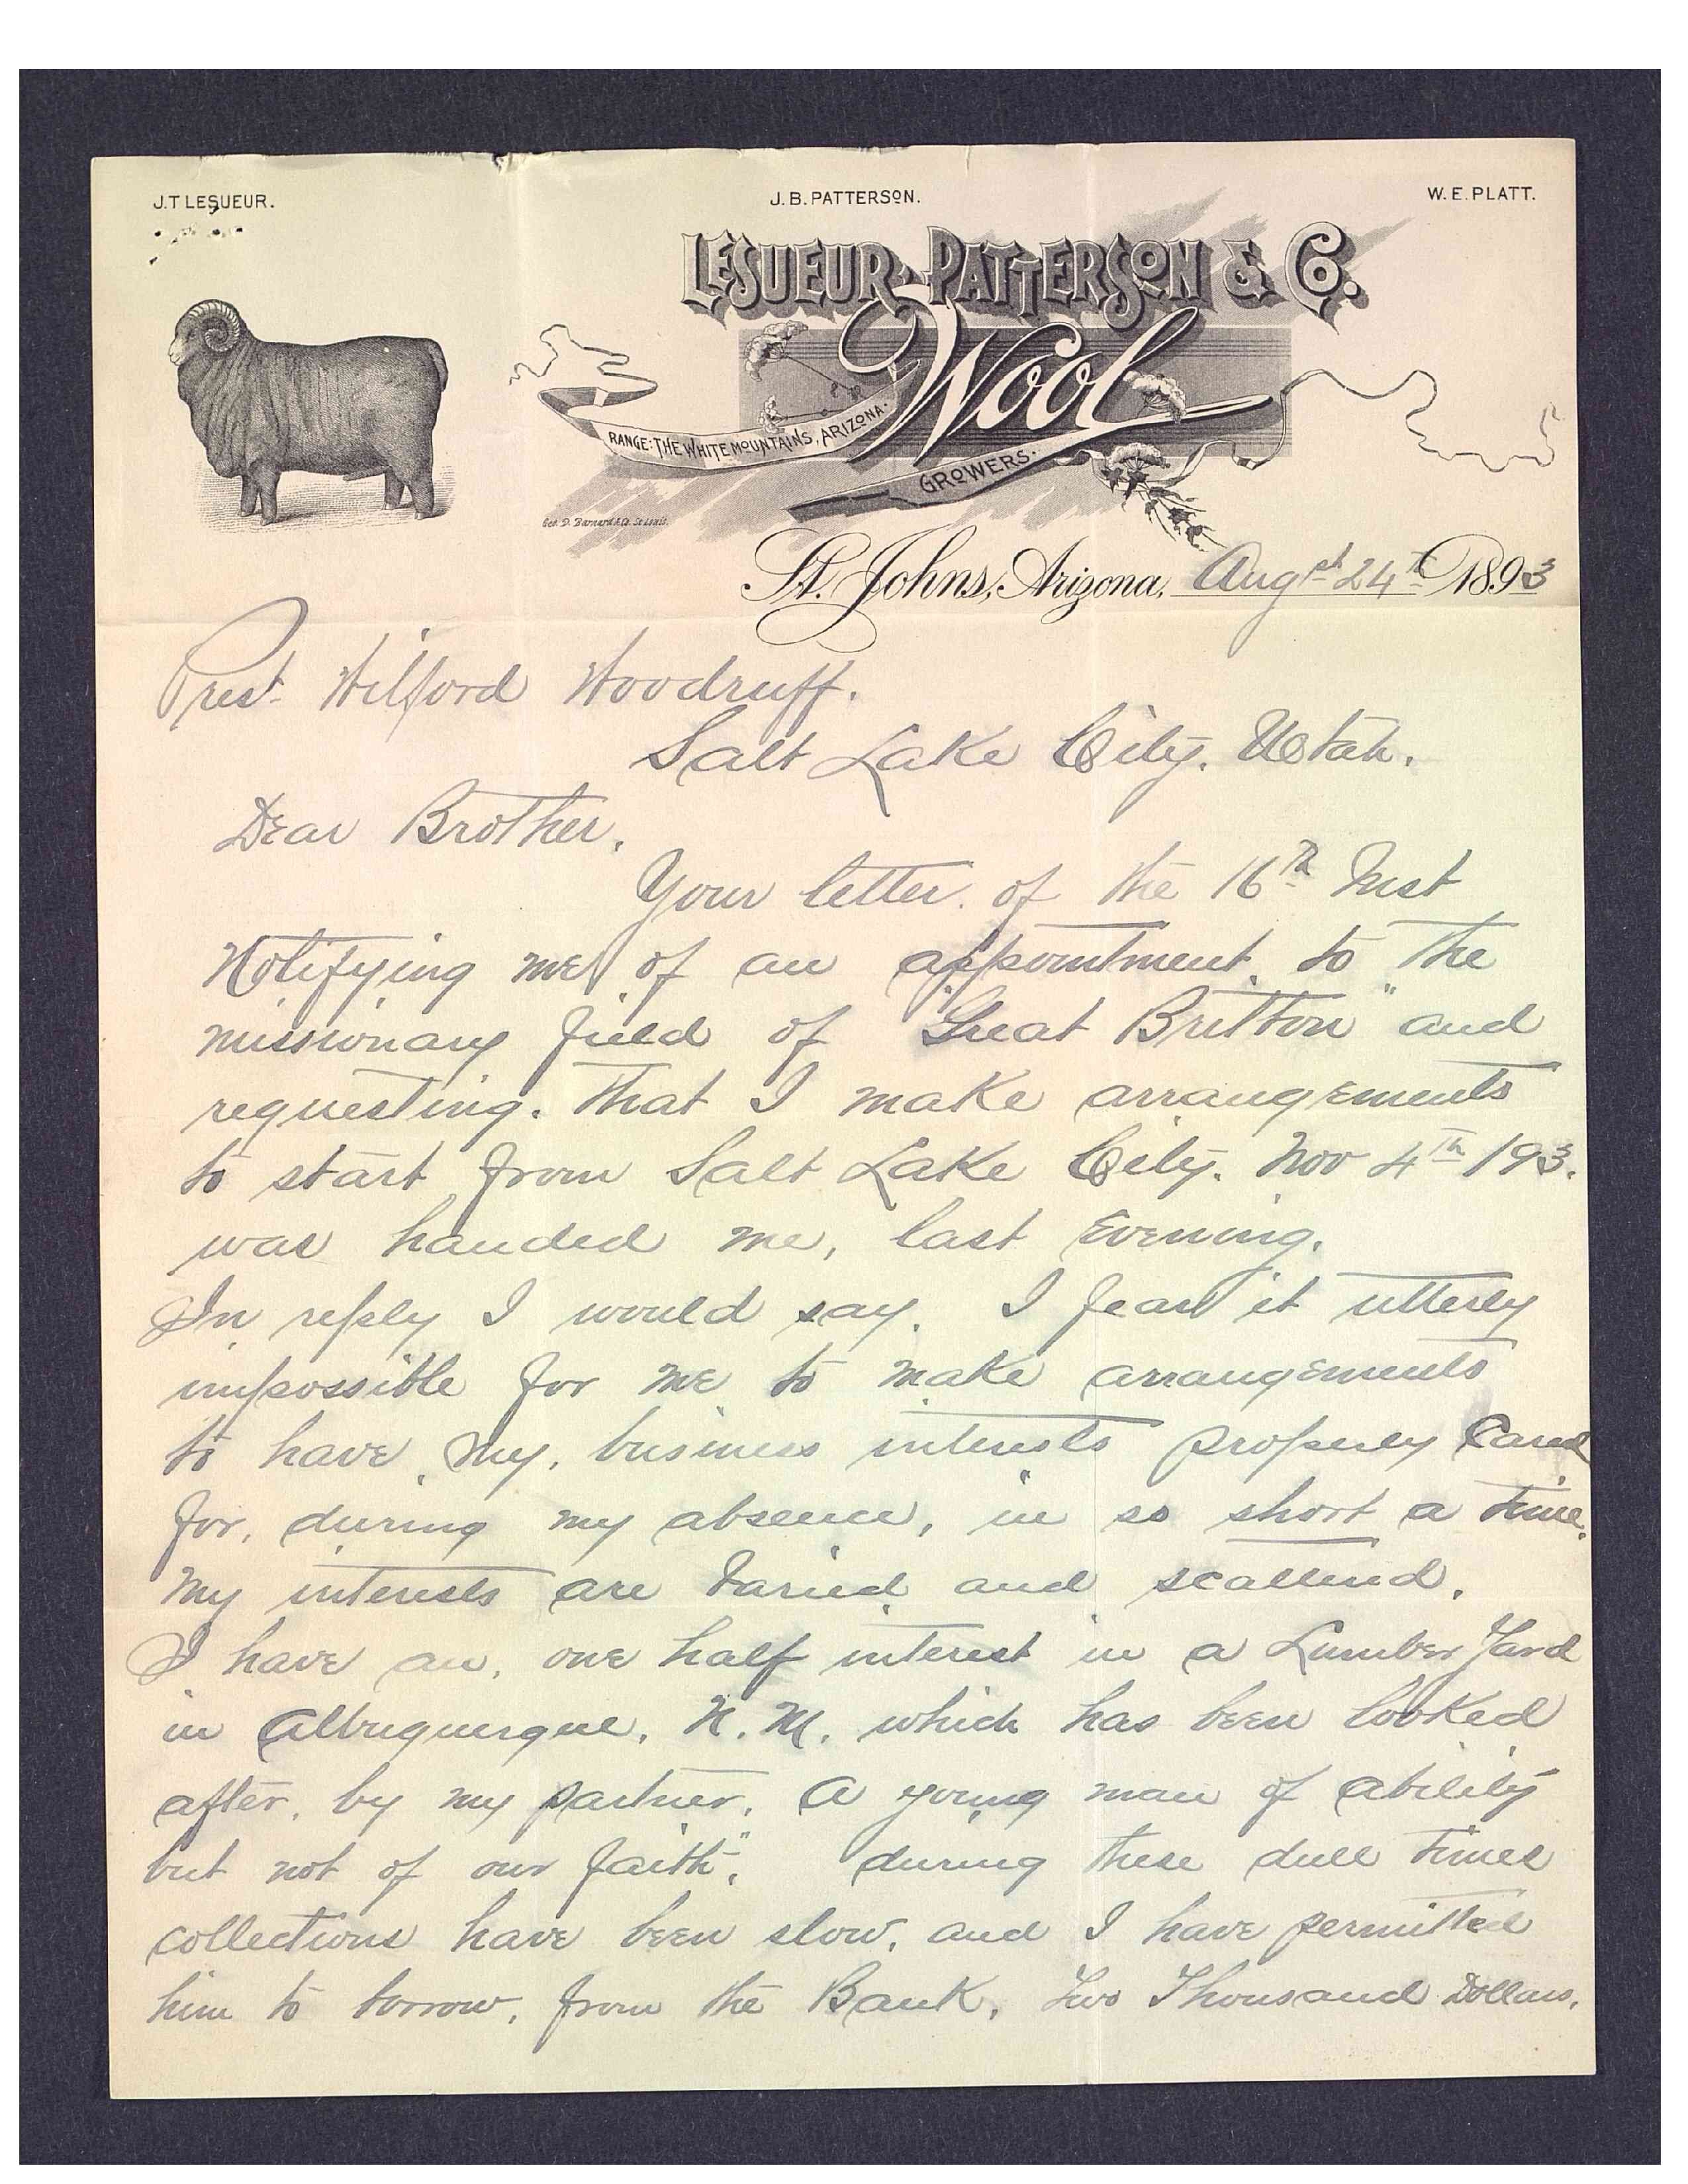 J.T LESUEUR.
J.B. PATTERSON.
W.E. PLATT.
LESUEUR, PATTERSON & CO.
Wool
RANGE: THE WHITE MOUNTAINS, ARIZONA.
GROWERS.
Geo. D. Barnard & Co. St Louis.
St. Johns, Arizona, Augst 24th 1893
Prest. Wilford Woodruff.
Salt Lake City. Utah.
Dear Brother,
Your letter. of the 16th Inst
Notifying me of an appointment. to the
missionary field of "Great Britton" and
requesting. that I make arrangements
to start from Salt Lake City. Nov 4th 193.
was handed me, last Evening.
In reply I would say. I fear it utterly
impossible for me to make arrangements
to have, My, business interests properly Cared
for, during my absence, in so short a time.
My interests are Varied and scattered.
I have an, one half interest in a Lumber Yard
in Albuquerque, N.M. which has been looked
after, by my partner, A young man of ability
but not of our faith". during these dull times
collections have been slow, and I have permitted
him to borrow, from the Bank, Two Thousand Dollars,